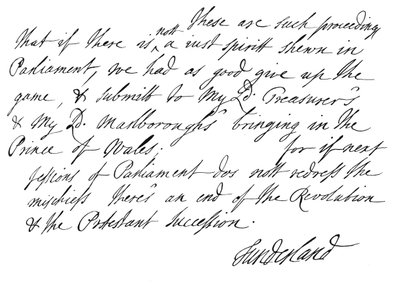 These are such proceeding
that if there is nott a iust spiritt shewn in
Parliament, we had as good give up the
game, & submitt to my Ld. Treasurer's
& my Ld. Marlborough's bringing in the
Prince of Wales; for if next
sessions of Parliament dos nott redress the
mischiefs there's an end of the Revolution
& the Protestant Succession.
Sunderland